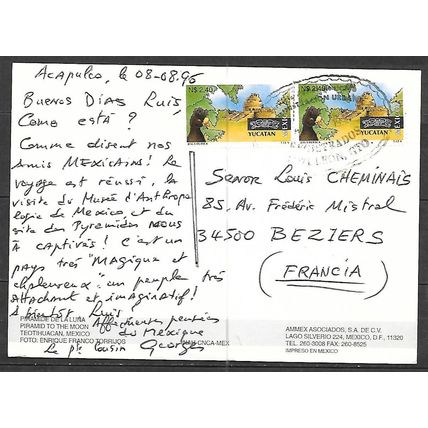 Acapulco, le 08-08.96
Buenos Dias Luis,
Como está ?
Comme disent nos
amis MEXICAINS! Le
voyage est réussi, la
visite du Musée d'Anthropo
logie de Mexico et du
site des Pyramides nous
a captivés! C'est un
pays très "Magique et
chaleureux": un peuple très
attachant et imaginatif!
A bientôt Luis
Affectueuses pensées
du Mexique
Le pt cousin Georges
PIRAMIDE DE LA LUNA
PIRAMID TO THE MOON
TEOTIHUACAN, MEXICO
FOTO: ENRIQUE FRANCO TORRIJOS
INAH-CNCA-MEX
N$ 2.40
YUCATAN
MEXICO
N$ 2.40
YUCATAN
MEXICO
Senor Louis CHEMINAIS
85. Av. Frédéric Mistral
34500 BEZIERS
(FRANCIA)
AMMEX ASOCIADOS, S.A. DE C.V.
LAGO SILVERIO 224, MEXICO, D.F., 11320
TEL. 260-3008 FAX: 260-8525
IMPRESO EN MEXICO